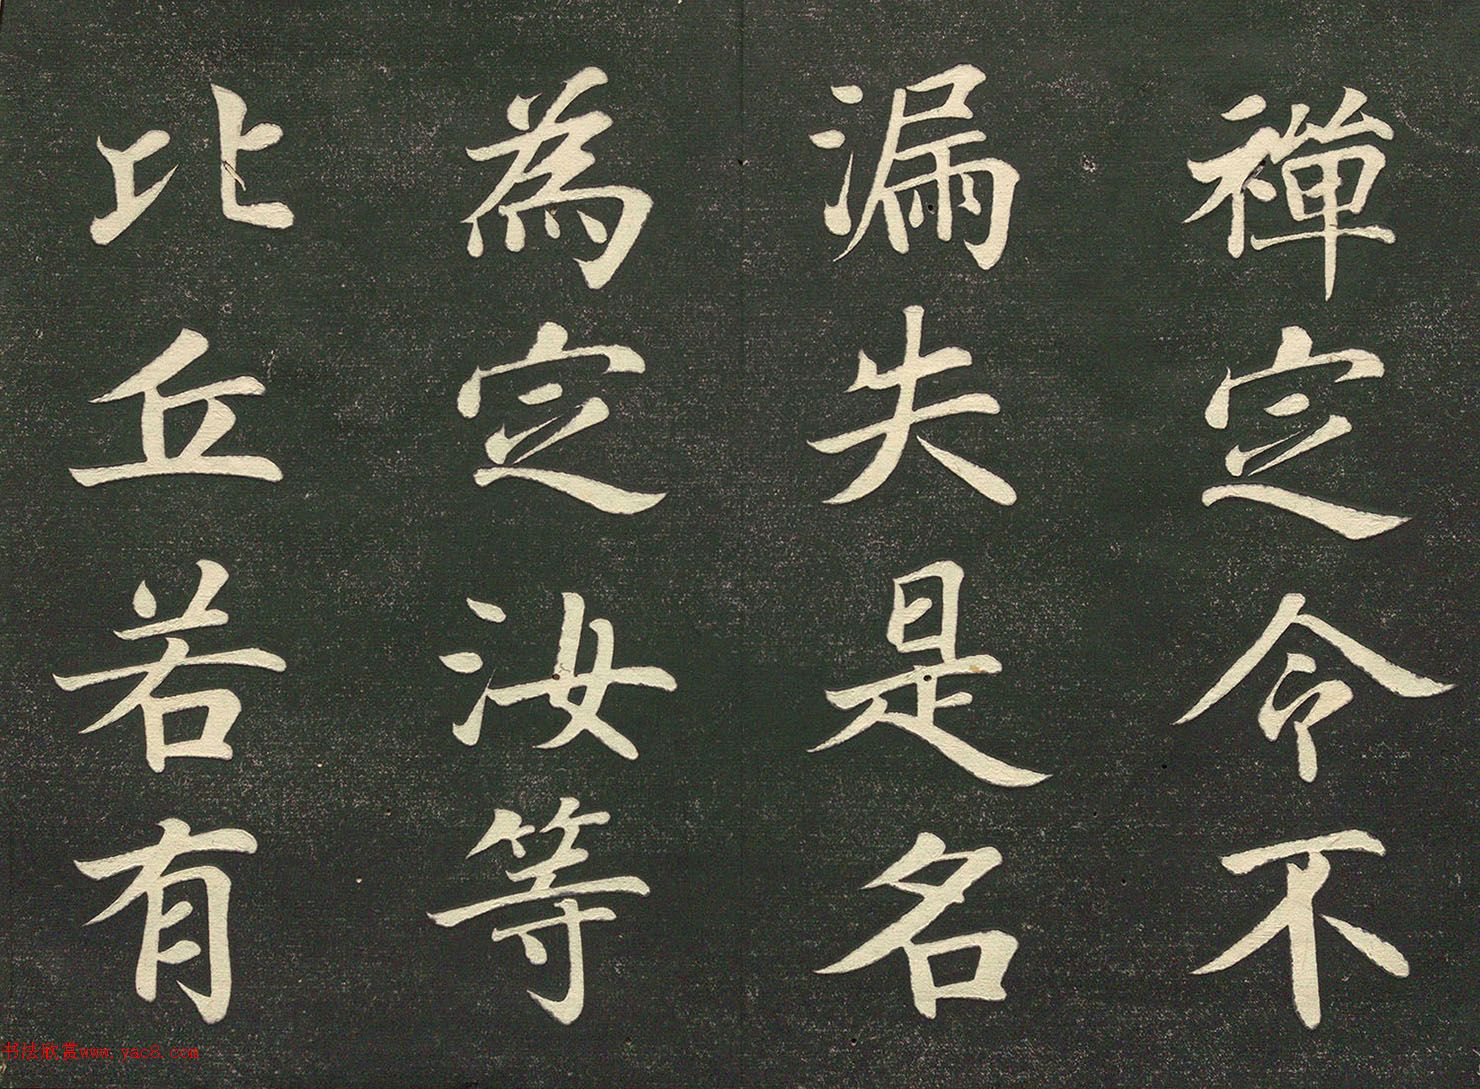 禪定令不
漏失是名
為定汝等
比丘若有
书法欣赏www.yac8.com